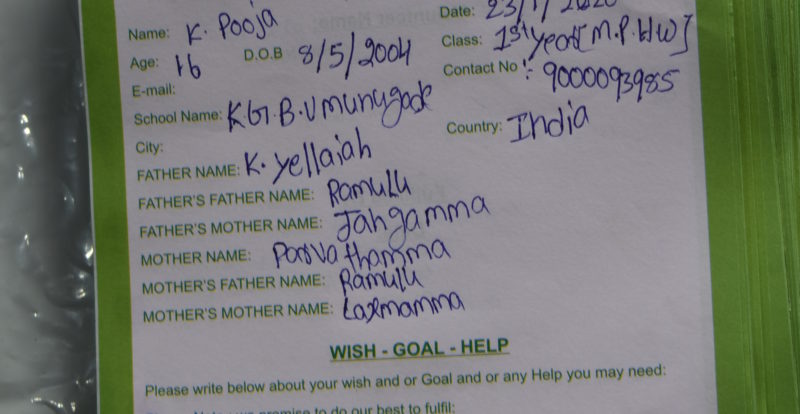 Name: K. Pooja Date: 23/1/2020
Age: 16 D.O.B 8/5/2004 Class: 1st year [M.P.H.W]
E-mail: Contact No :- 9000093985
School Name: K.G.B.V munugode
City: Country: India
FATHER NAME: K. Yellaiah
FATHER'S FATHER NAME: Ramulu
FATHER'S MOTHER NAME: Jangamma
MOTHER NAME: Parvathamma
MOTHER'S FATHER NAME: Ramulu
MOTHER'S MOTHER NAME: Laxmamma
WISH - GOAL - HELP
Please write below about your wish and or Goal and or any Help you may need:
promise to do our best to fulfil: